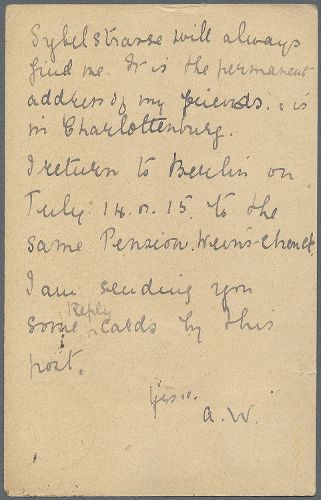 Sybelstrasse will always
find me. It is the permanent
address of my friends. & is
in Charlottenburg.
I return to Berlin on
July. 14. or. 15. to the
same Pension.
I am sending you
some Reply cards by this
post.
Yrs..
A. W.